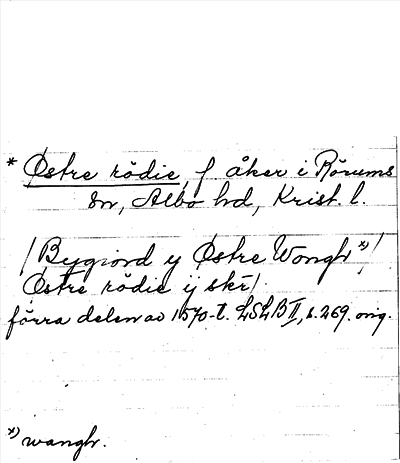 * Østre rödie, f åker i Rörums
sn, Albo hd, Krist. l.
/Bygiord y Østre Wongh *)/
Østre rödie ij skr/
förra delen av 1570-t. LSLB II, s. 269. orig.
*) wangh.